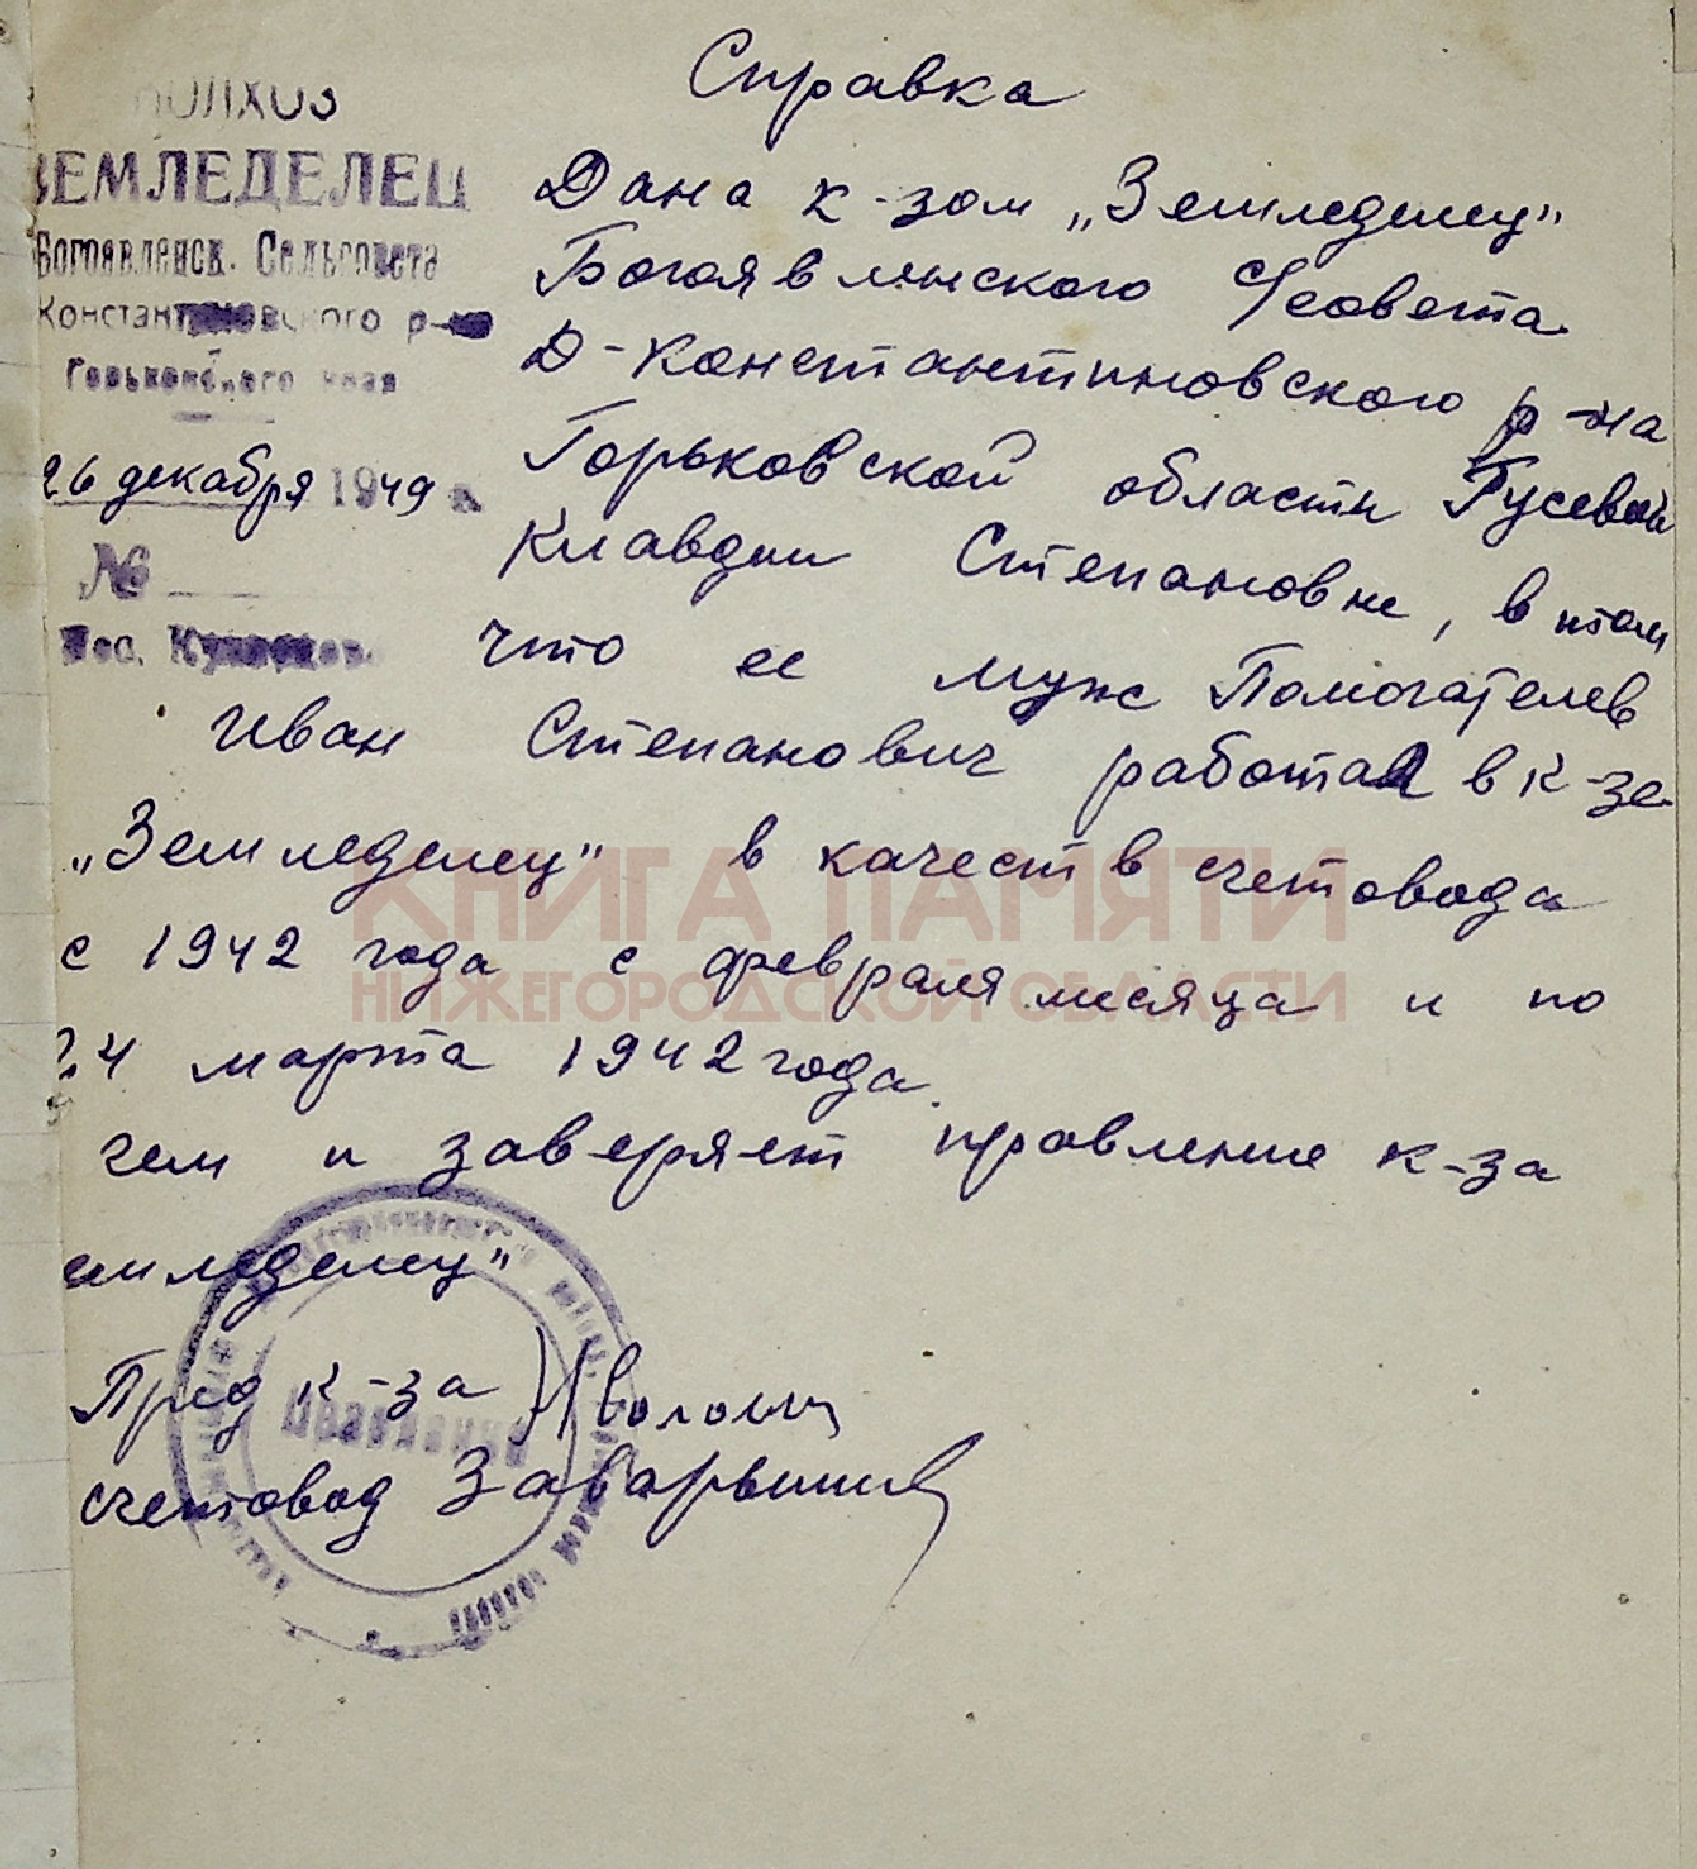 Справка
КОЛХОЗ
ЗЕМЛЕДЕЛЕЦ
Богоявленск. Сельсовета
Константиновского р-на
Горьковского края
26 декабря 1949 г.
№
Дана к-зом „Земледелец"
Богоявленского С/совета
Д-Константиновского р-на
Горьковской области Гусевой
Клавдии Степановне, в том
что ее муж Помогателев
Иван Степанович работал в к-зе
„Земледелец" в качеств счетовода
с 1942 года с февраля месяца и по
24 марта 1942 года.
чем и заверяет правление к-за
емледелец"
Пред к-за
счетовод
Правление
КНИГА ПАМЯТИ
НИЖЕГОРОДСКОЙ ОБЛАСТИ